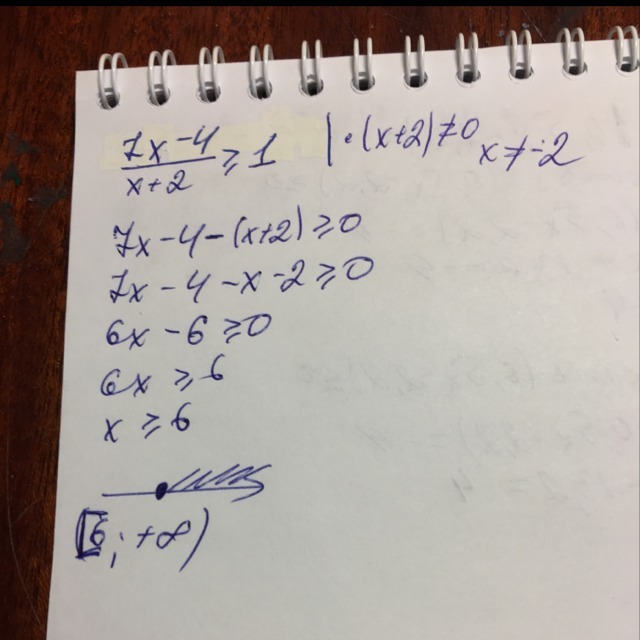 (7x-4)/(x+2) ≥ 1 | · (x+2) ≠ 0 x ≠ -2
7x - 4 - (x+2) ≥ 0
7x - 4 - x - 2 ≥ 0
6x - 6 ≥ 0
6x ≥ 6
x ≥ 6
[6; +∞)